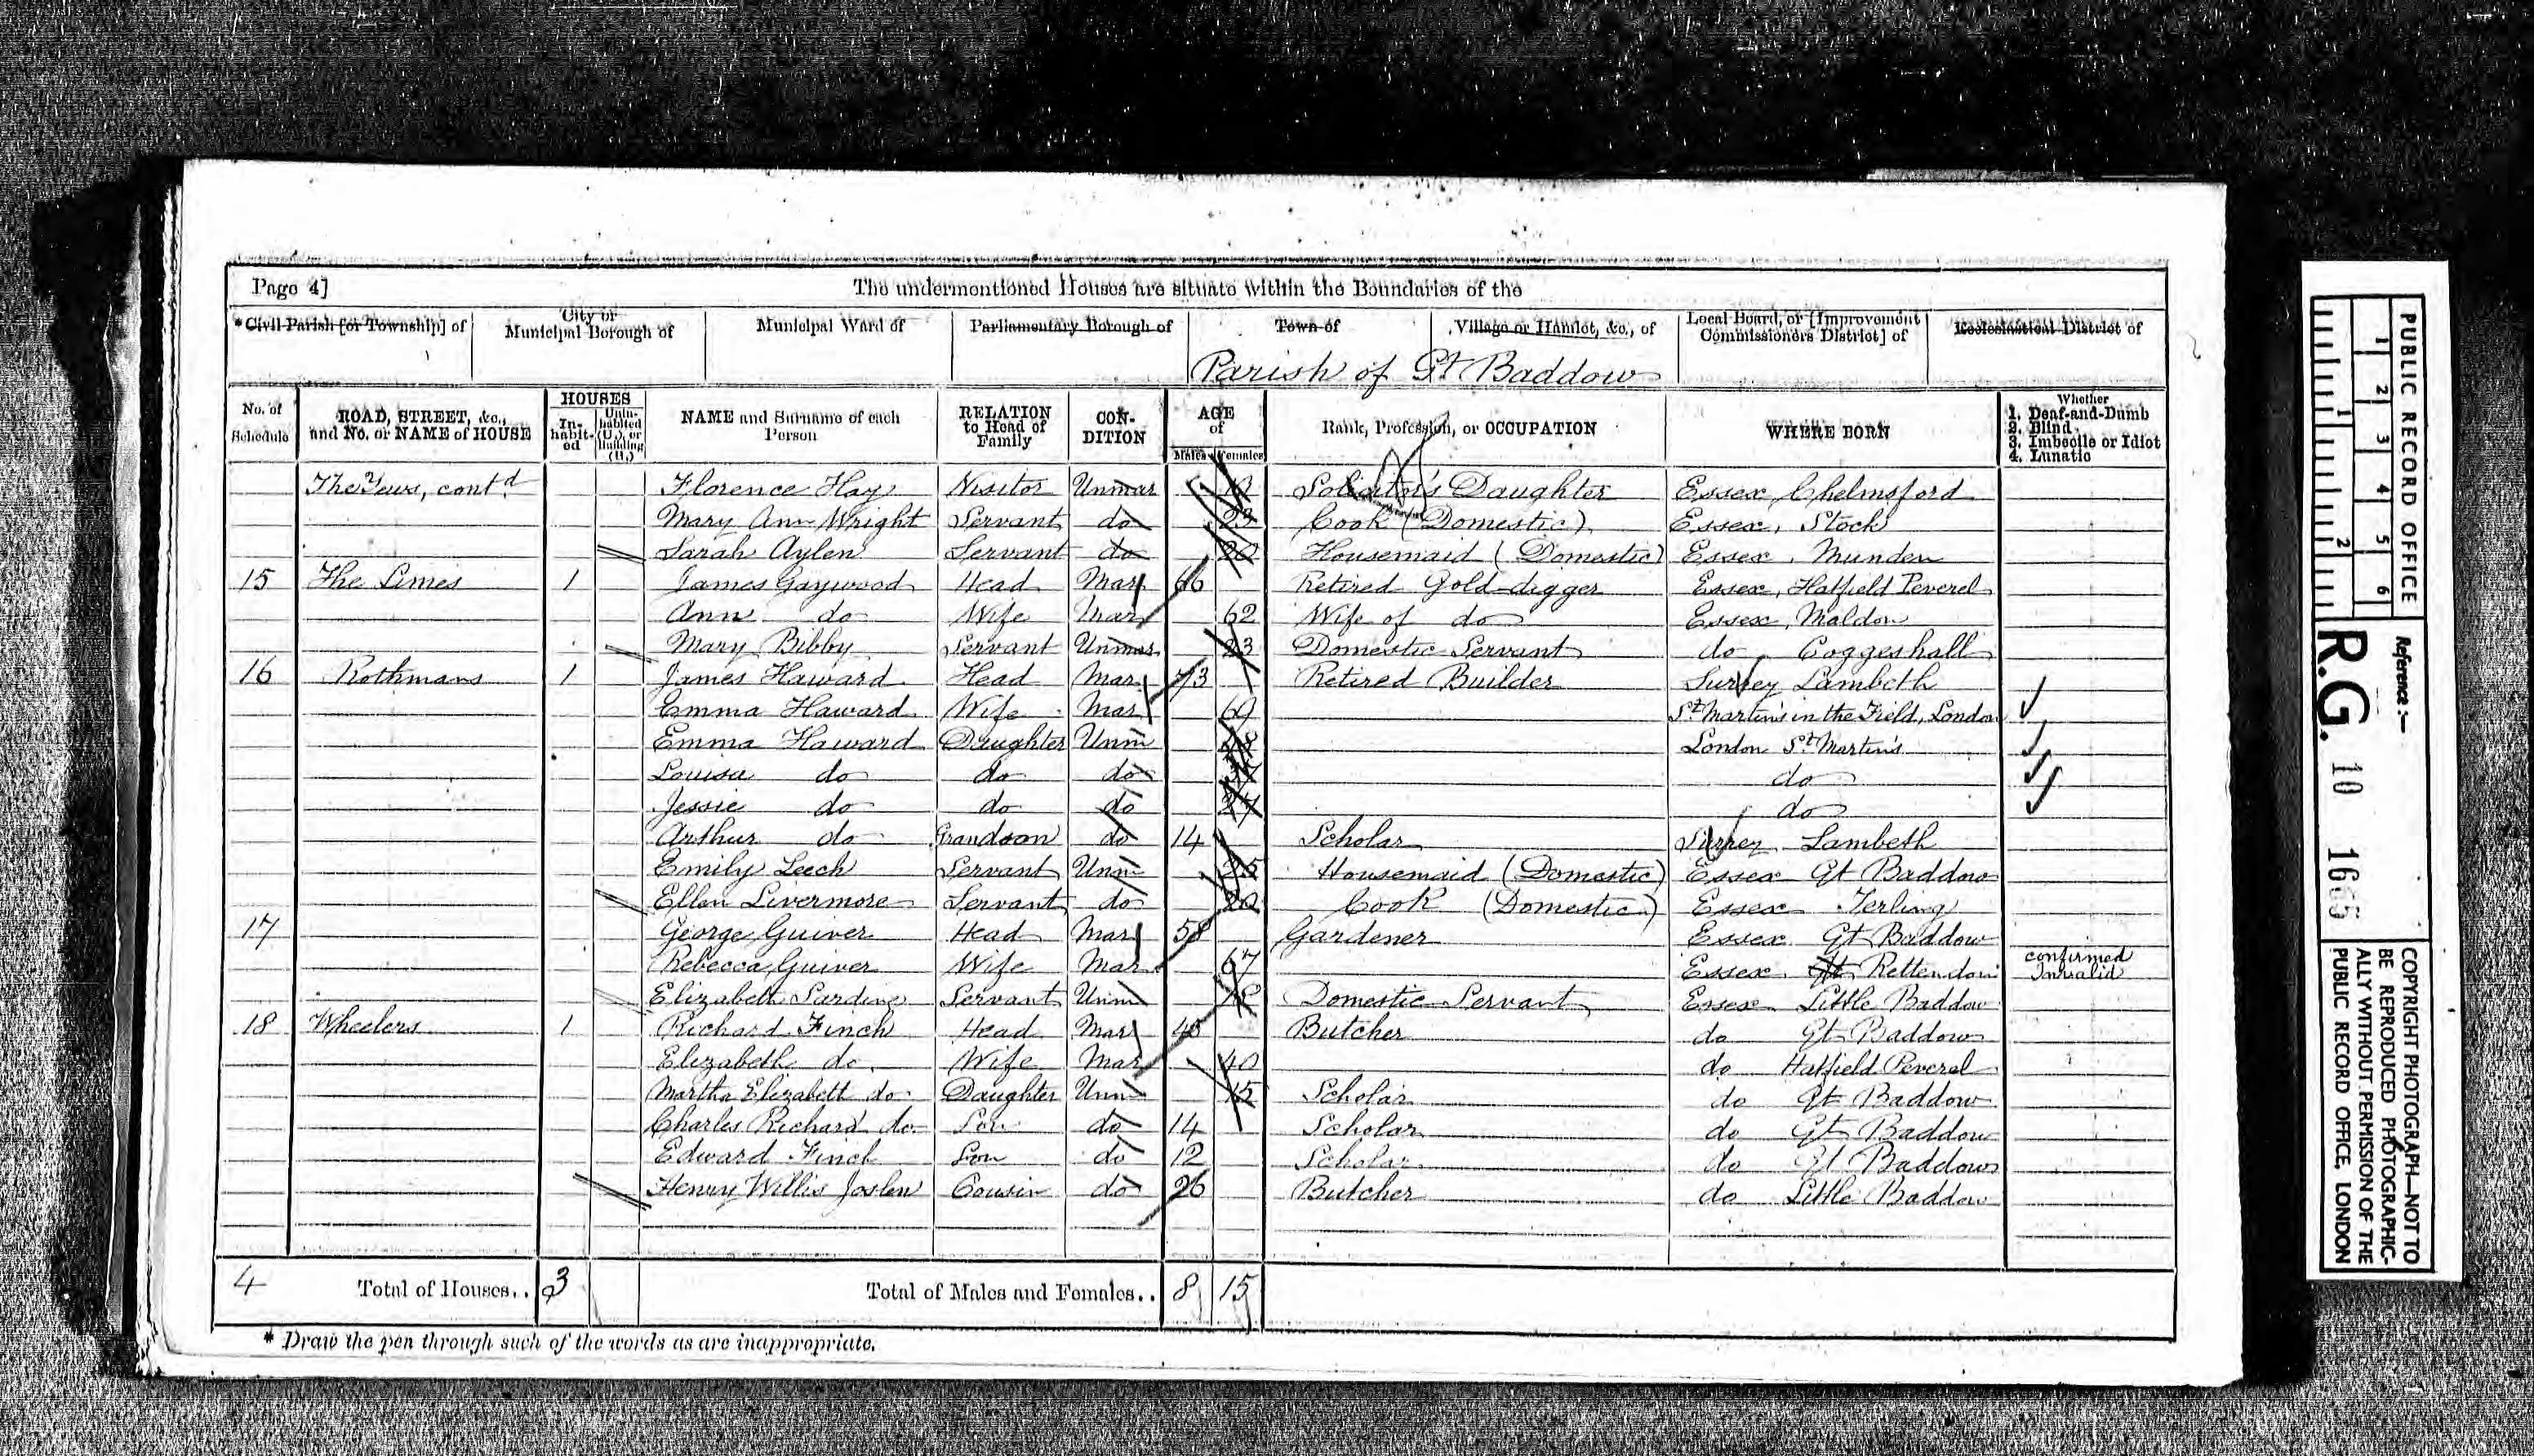 Page 4]
The undermentioned Houses are situate within the Boundaries of the
*Civil Parish [or Township] of
City or Municipal Borough of
Municipal Ward of
Parliamentary Borough of
Town of
Village or Hamlet, &c., of
Local Board, or [Improvement Commissioners District] of
Ecclesiastical District of
Parish of Gt Baddow
No. of Schedule
ROAD, STREET, &c., and No. or NAME of HOUSE
HOUSES
Inhabited
Uninhabited (U.), or Building (B.)
NAME and Surname of each Person
RELATION to Head of Family
CONDITION
AGE of
Males Females
Rank, Profession, or OCCUPATION
WHERE BORN
Whether
1. Deaf-and-Dumb
2. Blind
3. Imbecile or Idiot
4. Lunatic
The Yews, contd. Florence Hay Visitor Unmar Solicitor's Daughter Essex Chelmsford
Mary Ann Wright Servant do 23 Cook (Domestic) Essex, Stock
Sarah Aylen Servant do 20 Housemaid (Domestic) Essex, Munden
15 The Limes 1 James Gaywood Head Mar 66 Retired Gold-digger Essex, Hatfield Peverel
Ann do Wife Mar 62 Wife of do Essex, Maldon
Mary Bibby Servant Unmar 23 Domestic Servant do Coggeshall
16 Rothmans 1 James Haward Head Mar 73 Retired Builder Surrey Lambeth
Emma Haward Wife Mar 69 St Martin's in the Field, London
Emma Haward Daughter Unm London St Martin's
Louisa do do do 37 do
Jessie do do do 27 do
Arthur do Grandson do 14 Scholar Surrey Lambeth
Emily Leech Servant Unm 25 Housemaid (Domestic) Essex Gt Baddow
Ellen Livermore Servant do 20 Cook (Domestic) Essex Terling
17 George Guiver Head Mar 58 Gardener Essex Gt Baddow
Rebecca Guiver Wife Mar 67 Essex Gt Rettendon confirmed Invalid
Elizabeth Sardine Servant Unm Domestic Servant Essex Little Baddow
18 Wheelers 1 Richard Finch Head Mar 45 Butcher do Gt Baddow
Elizabeth do. Wife Mar 40 do Hatfield Peverel
Martha Elizabeth do. Daughter Unm 15 Scholar do Gt Baddow
Charles Richard do. Son do 14 Scholar do Gt Baddow
Edward Finch Son do 12 Scholar do Gt Baddow
Henry Willis Joslen Cousin do 26 Butcher do Little Baddow
4 Total of Houses.. 3 Total of Males and Females.. 8 15
* Draw the pen through such of the words as are inappropriate.
PUBLIC RECORD OFFICE
1 2 3 4 5 6
1 2
Reference :—
R.G. 10 1665
COPYRIGHT PHOTOGRAPH—NOT TO
BE REPRODUCED PHOTOGRAPHIC-
ALLY WITHOUT PERMISSION OF THE
PUBLIC RECORD OFFICE, LONDON